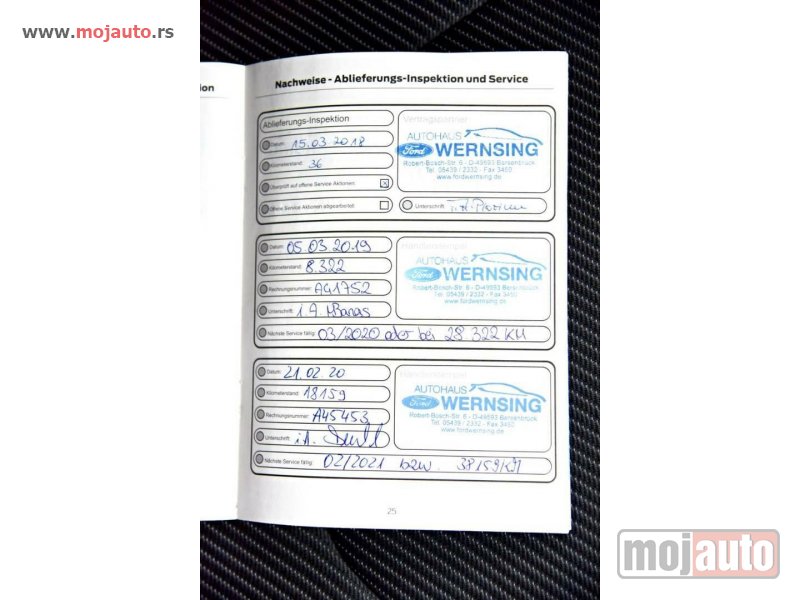 www.mojauto.rs
ion
Nachweise - Ablieferungs-Inspektion und Service
Ablieferungs-Inspektion
Vertragspartner
Datum: 15.03.2018
Kilometerstand: 36
Überprüft auf offene Service Aktionen: x
Offene Service Aktionen abgearbeitet:
AUTOHAUS
Ford WERNSING
Robert-Bosch-Str. 6 - D-49593 Bersenbrück
Tel. 05439 / 2332 - Fax 3460
www.fordwernsing.de
Unterschrift:
Datum: 05.03.2019
Kilometerstand: 8.322
Rechnungsnummer: A41752
Unterschrift: i.A.
Händlerstempel
AUTOHAUS
Ford WERNSING
Robert-Bosch-Str. 6 - D-49593 Bersenbrück
Tel. 05439 / 2332 - Fax 3460
www.fordwernsing.de
Nächste Service fällig: 03/2020 oder bei 28 322 KM
Datum: 21.02.20
Kilometerstand: 18159
Rechnungsnummer: A45453
Unterschrift: i.A.
Händlerstempel
AUTOHAUS
Ford WERNSING
Robert-Bosch-Str. 6 - D-49593 Bersenbrück
Tel. 05439 / 2332 - Fax 3460
www.fordwernsing.de
Nächste Service fällig: 02/2021 bzw. 38159 KM
25
mojauto